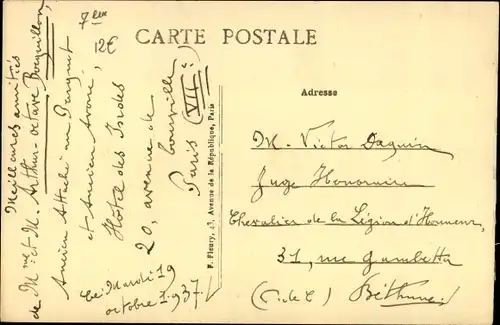 7len
12€
CARTE POSTALE
Adresse
M. Victor Daquin
Juge Honoraire
Chevalier de la Légion d'Honneur
31, rue Gambetta
(P. de C) Béthune
Meilleures amitiés
de Mme et M. Arthur-Octave Bocquillon,
Ancien Attaché au Parquet
et Ancien Avoué,
Hôtel des Indes
20, avenue de
Tourville
Paris (VIIe)
Ce Mardi 19
octobre 1937
F. Fleury, 43, Avenue de la République, Paris